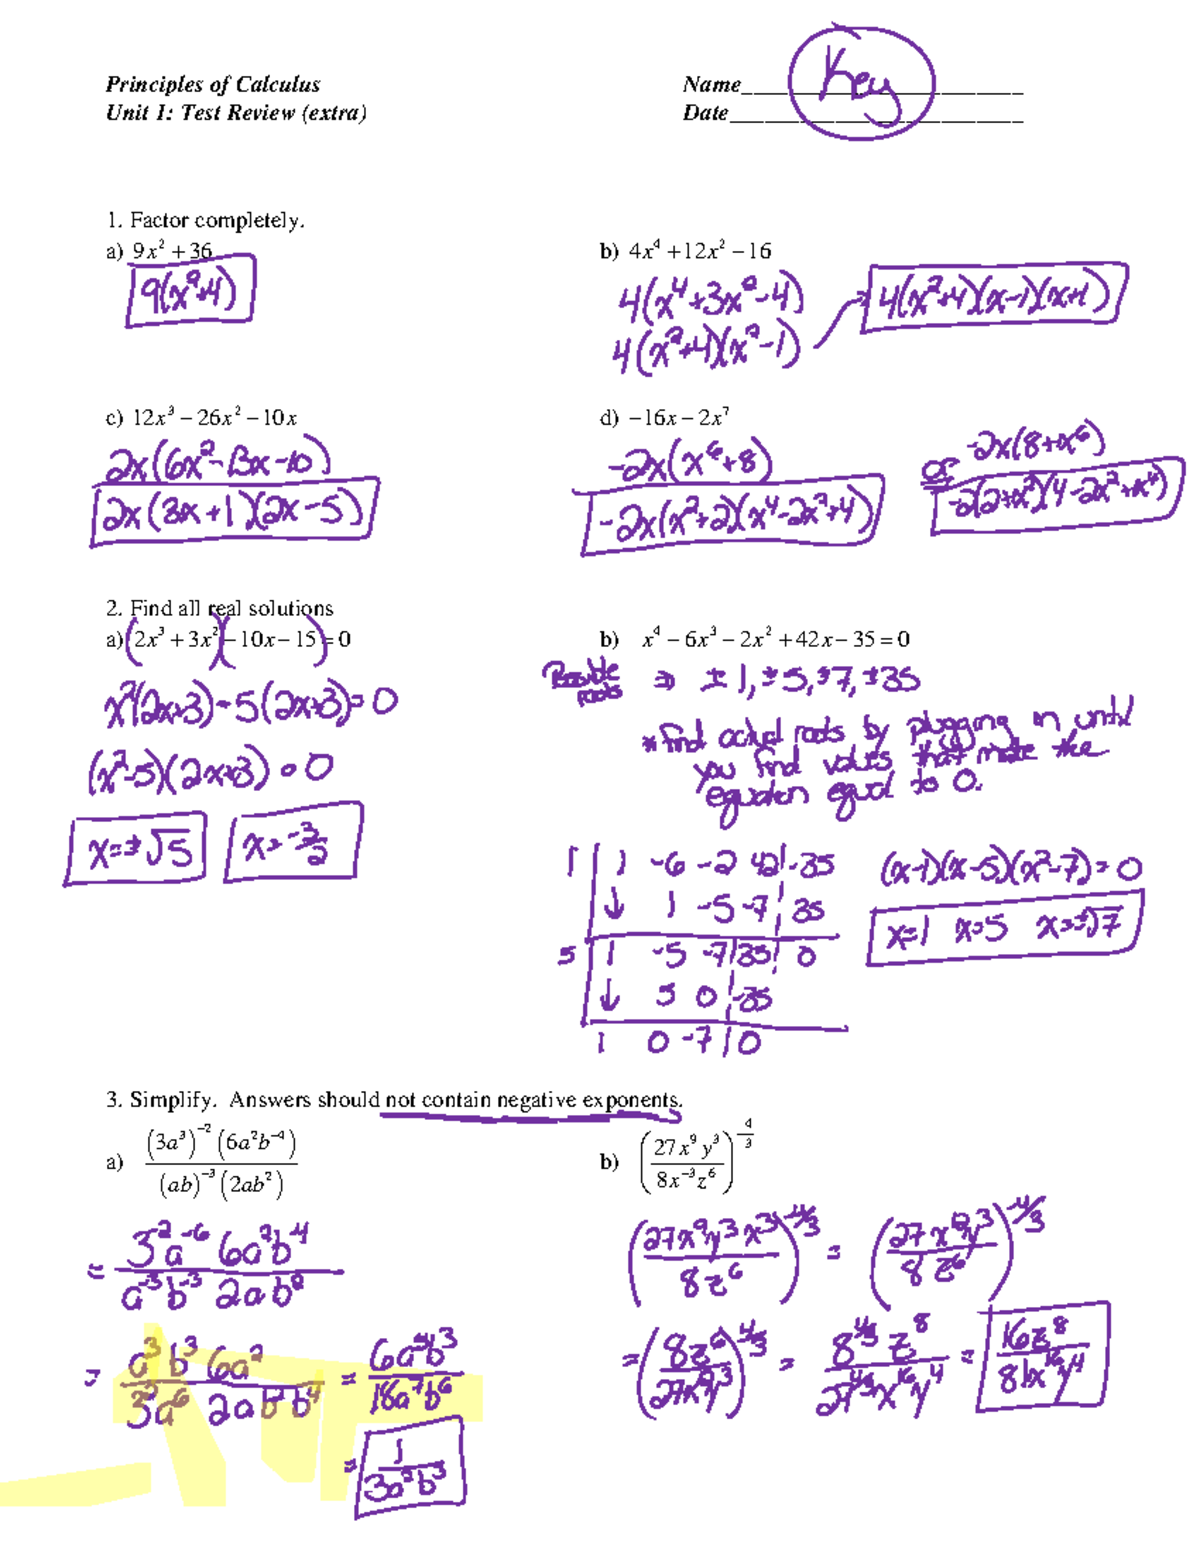 Principles of Calculus
Unit 1: Test Review (extra)
Name
Key
Date
1. Factor completely.
a) 9x² + 36
9(x²+4)
b) 4x⁴ + 12x² − 16
4(x⁴+3x²-4)
4(x²+4)(x²-1) → 4(x²+4)(x-1)(x+1)
c) 12x³ − 26x² − 10x
2x(6x²-13x-10)
2x(3x+1)(2x-5)
d) −16x − 2x⁷
-2x(x⁶+8)
-2x(x²+2)(x⁴-2x²+4)
or -2x(8+x⁶)
-2(2+x²)(4-2x²+x⁴)
2. Find all real solutions
a) (2x³ + 3x²)(− 10x − 15) = 0
x²(2x+3)-5(2x+3)=0
(x²-5)(2x+3)=0
x=±√5 x=-3/2
b) x⁴ − 6x³ − 2x² + 42x − 35 = 0
Possible roots ⇒ ±1, ±5, ±7, ±35
*Find actual roots by plugging in until
you find values that make the
equation equal to 0.
1 | 1 -6 -2 42 -35
↓ 1 -5 -7 35
5 | 1 -5 -7 35 0
↓ 5 0 -35
1 0 -7 0
(x-1)(x-5)(x²-7)=0
x=1 x=5 x=±√7
3. Simplify. Answers should not contain negative exponents.
a) (3a³)⁻² (6a²b⁻⁴) / (ab)⁻³ (2ab²)
= 3⁻²a⁻⁶ 6a²b⁻⁴ / a⁻³b⁻³ 2ab²
= a³b³ 6a² / 3²a⁶ 2ab²b⁴ = 6a⁵b³ / 18a⁷b⁶
= 1 / 3a²b³
b) (27x⁹y³ / 8x⁻³z⁶)^(−4/3)
(27x⁹y³x³ / 8z⁶)^(-4/3) = (27x¹²y³ / 8z⁶)^(-4/3)
= (8z⁶ / 27x¹²y³)^(4/3) = 8^(4/3) z⁸ / 27^(4/3) x¹⁶y⁴ = 16z⁸ / 81x¹⁶y⁴